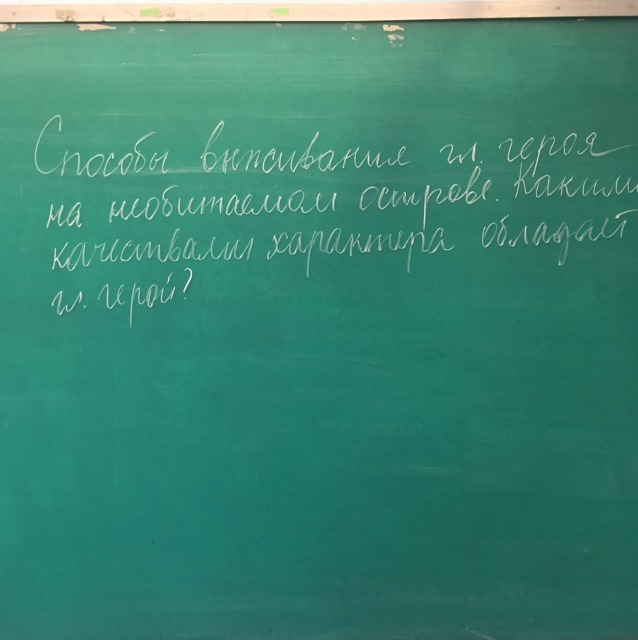 Способы выживания гл. героя
на необитаемом острове. Какими
качествами характера обладает
гл. герой?